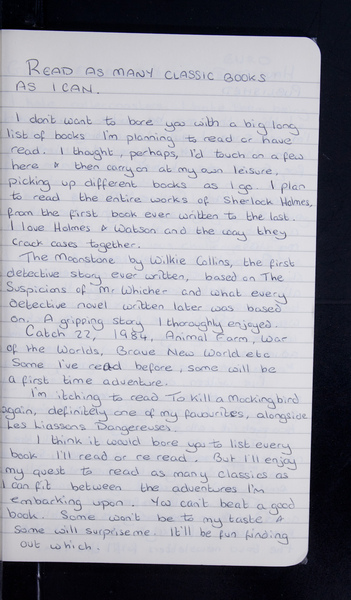 READ AS MANY CLASSIC BOOKS
AS I CAN.
I don't want to bore you with a big long
list of books I'm planning to read or have
read. I thought, perhaps, I'd touch on a few
here & then carry on at my own leisure,
picking up different books as I go. I plan
to read the entire works of Sherlock Holmes,
from the first book ever written to the last.
I love Holmes & Watson and the way they
crack cases together.
The Moonstone by Wilkie Collins, the first
detective story ever written, based on The
Suspicions of Mr Whicher and what every
detective novel written later was based
on. A gripping story I thoroughly enjoyed.
Catch 22, 1984, Animal Farm, War
of the Worlds, Brave New World etc
Some I've read before, some will be
a first time adventure.
I'm itching to read To Kill a Mockingbird
again, definitely one of my favourites, alongside
Les Liassons Dangereuses.
I think it would bore you to list every
book I'll read or re read. But I'll enjoy
my quest to read as many classics as
I can fit between the adventures I'm
embarking upon. You can't beat a good
book. Some won't be to my taste &
some will surprise me. It'll be fun finding
out which.